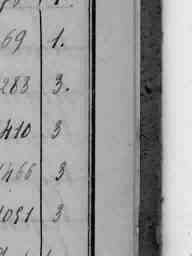 69 1.
283 3.
410 3
1466 3
1091 3